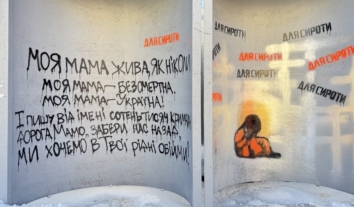 ДЛЯ СИРОТИ
МОЯ МАМА ЖИВА, ЯК НІКОЛИ
МОЯ МАМА – БЕЗСМЕРТНА,
МОЯ МАМА – УКРАЇНА!
І ПИШУ ВІД ІМЕНІ СОТЕНЬ ТИСЯЧ
ДОРОГА МАМО, ЗАБЕРИ НАС НАЗАД,
МИ ХОЧЕМО В ТВОЇ РІДНІ ОБІЙМИ!
ДЛЯ СИРОТИ
ДЛЯ СИРОТИ
ДЛЯ СИРОТИ
ДЛЯ СИРОТИ
ДЛЯ СИРОТИ
ДЛЯ СИРОТИ